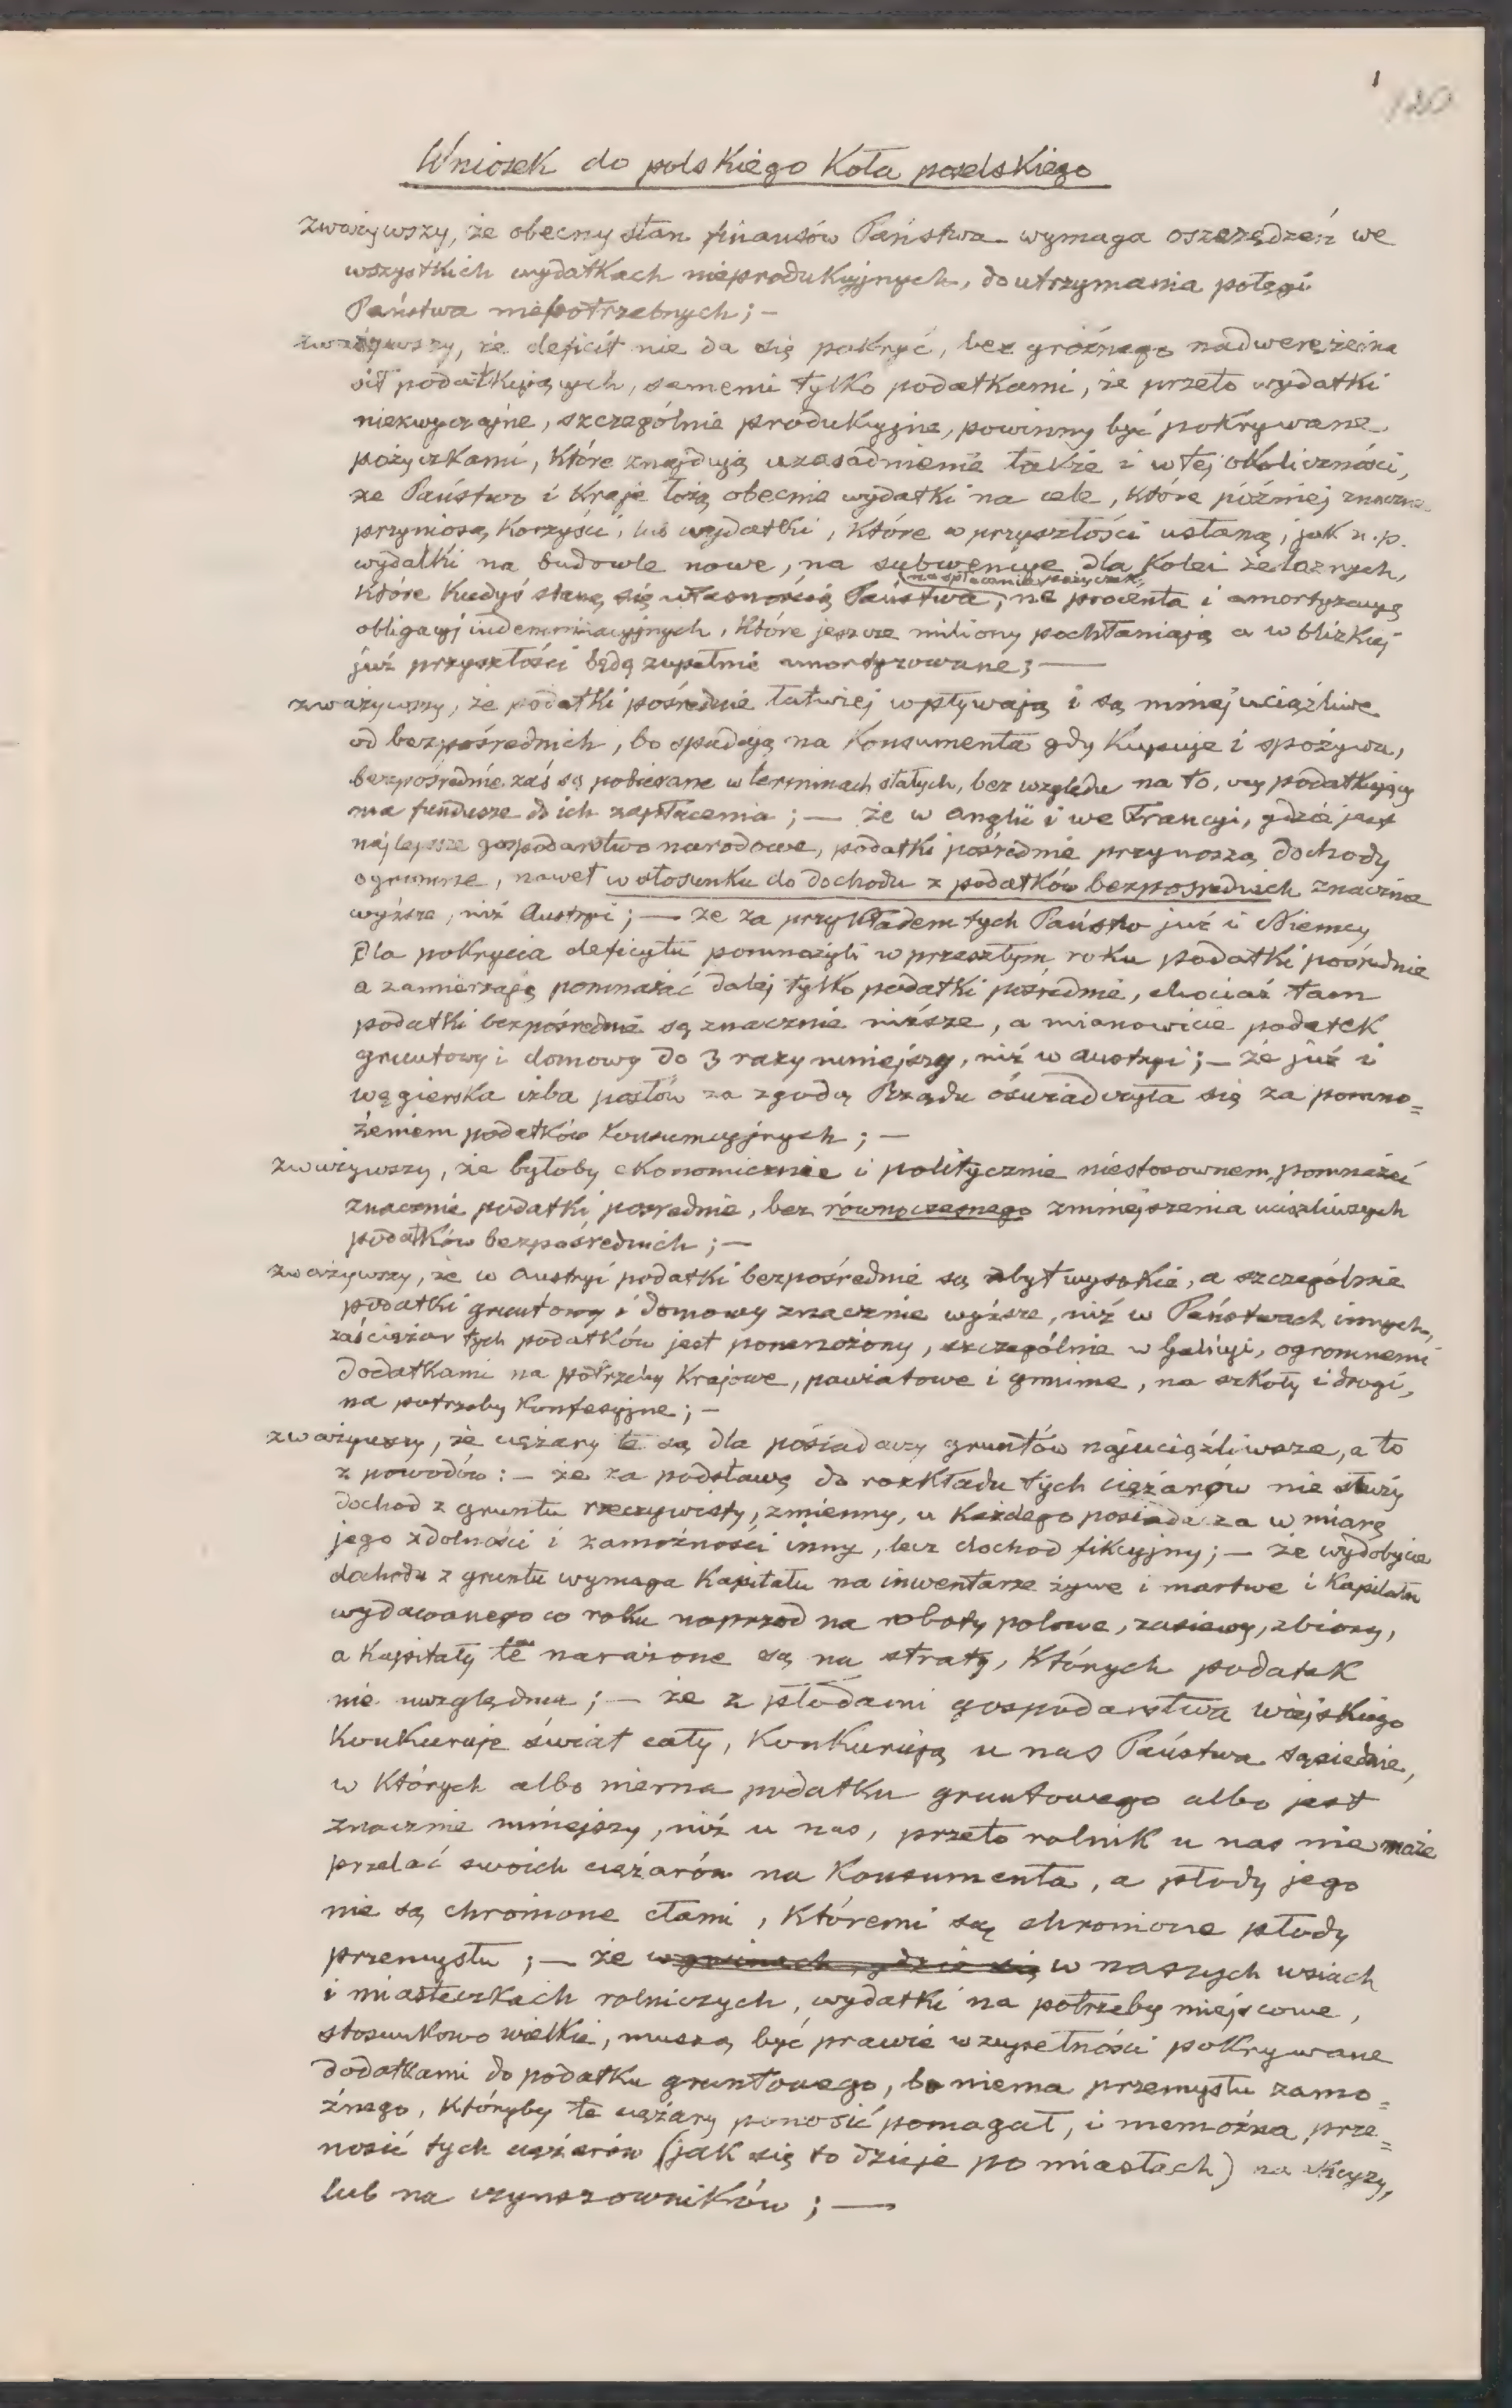 1
120
Wniosek do polskiego Koła poselskiego
zważywszy, że obecny stan finansów Państwa wymaga oszczędzeń we
wszystkich wydatkach nieprodukcyjnych, do utrzymania potęgi
Państwa niepotrzebnych; —
zważywszy, że deficit nie da się pokryć, bez groźnego nadwerężenia
sił podatkujących, samemi tylko podatkami, że przeto wydatki
niezwyczajne, szczególnie produkcyjne, powinny być pokrywane
pożyczkami, które znajdują uzasadnienie także i w tej okoliczności,
że Państwo i Kraje łożą obecnie wydatki na cele, które później znaczne
przyniosą korzyści, lub wydatki, które w przyszłości ustaną, jak n.p.
wydatki na budowle nowe, na subwencye dla kolei żelaznych,
na spłacanie pożyczek,
które kiedyś staną się własnością Państwa, na procenta i amortyzacyą
obligacyj indemnizacyjnych, które jeszcze miliony pochłaniają a w blizkiej
już przyszłości będą zupełnie amortyzowane; —
zważywszy, że podatki pośrednie łatwiej wpływają i są mniej uciążliwe
od bezpośrednich, bo spadają na konsumenta gdy kupuje i spożywa,
bezpośrednie zaś są pobierane w terminach stałych, bez względu na to, czy podatkujący
ma fundusze do ich zapłacenia; — że w Anglii i we Francyi, gdzie jest
najlepsze gospodarstwo narodowe, podatki pośrednie przynoszą dochody
ogromne, nawet w stosunku do dochodu z podatków bezpośrednich znacznie
wyższe, niż Austryi; — że za przykładem tych Państw już i Niemcy
dla pokrycia deficytu pomnożyli w przeszłym roku podatki pośrednie
a zamierzają pomnażać dalej tylko podatki pośrednie, chociaż tam
podatki bezpośrednie są znacznie niższe, a mianowicie podatek
gruntowy i domowy do 3 razy mniejszy, niż w Austryi; — że już i
węgierska izba posłów za zgodą Rządu oświadczyła się za pomno=
żeniem podatków konsumcyjnych; —
zważywszy, że byłoby ekonomicznie i politycznie niestosownem, pomnażać
znacznie podatki pośrednie, bez równoczesnego zmniejszenia uciążliwszych
podatków bezpośrednich; —
zważywszy, że w Austryi podatki bezpośrednie są zbyt wysokie, a szczególnie
podatki gruntowy i domowy znacznie wyższe, niż w Państwach innych,
zaś ciężar tych podatków jest pomnożony, szczególnie w Galicyi, ogromnemi
dodatkami na potrzeby krajowe, powiatowe i gminne, na szkoły i drogi,
na potrzeby konfesyjne; —
zważywszy, że ciężary te są dla posiadaczy gruntów najuciążliwsze, a to
z powodów: — że za podstawę do rozkładu tych ciężarów nie służy
dochod z gruntu rzeczywisty, zmienny, u każdego posiadacza w miarę
jego zdolności i zamożności inny, lecz dochod fikcyjny; — że wydobycie
dochodu z gruntu wymaga kapitału na inwentarze żywe i martwe i kapitału
wydawanego co roku naprzod na roboty polowe, zasiewy, zbiory,
a kapitały te narażone są na straty, których podatek
nie uwzględnia; — że z płodami gospodarstwa wiejskiego
konkuruje świat cały, konkurują u nas Państwa sąsiednie,
w których albo niema podatku gruntowego albo jest
znacznie mniejszy, niż u nas, przeto rolnik u nas nie może
przelać swoich ciężarów na konsumenta, a płody jego
nie są chronione cłami, któremi są chronione płody
przemysłu; — że w gminach, gdzie się w naszych wsiach
i miasteczkach rolniczych, wydatki na potrzeby miejscowe,
stosunkowo wielkie, muszą być prawie w zupełności pokrywane
dodatkami do podatku gruntowego, bo niema przemysłu zamo=
żnego, któryby te ciężary ponosić pomagał, i niemożna prze=
nosić tych ciężarów (jak się to dzieje po miastach) na
lub na czynszowników; —